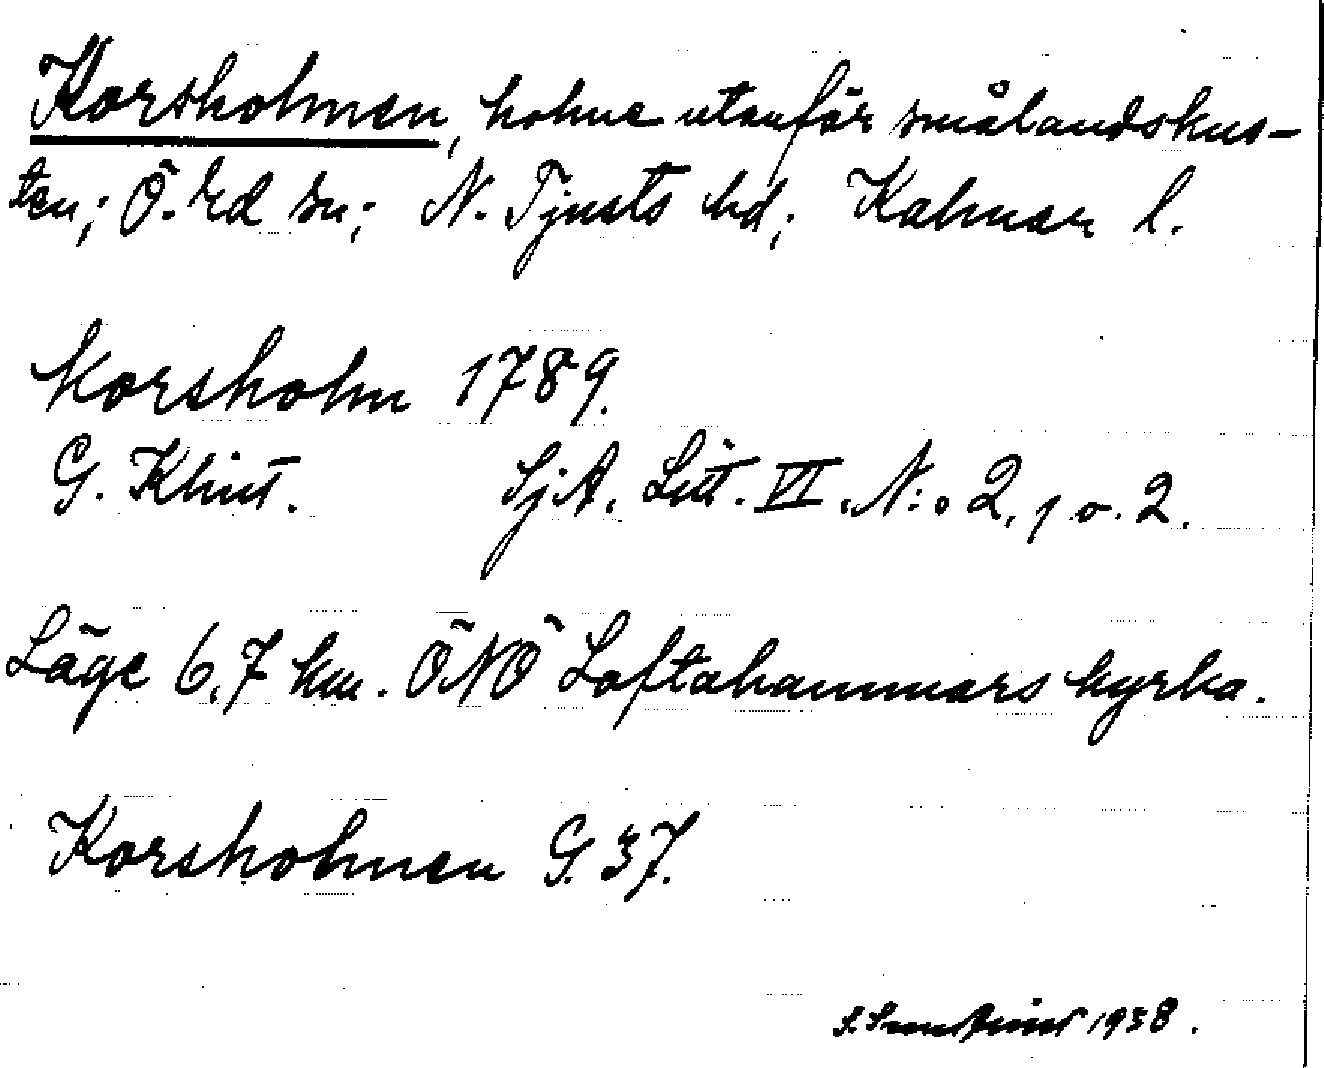 Korsholmen, holme utanför smålandskus-
ten; Ö. Ed sn; N. Tjusts hd; Kalmar l.
Korsholm 1789.
G. Klint. SjA. Litt. VI. N:o 2, 1 o. 2.
Läge 6,7 km. ÖNÖ Loftahammars kyrka.
Korsholmen G. 37.
1938.